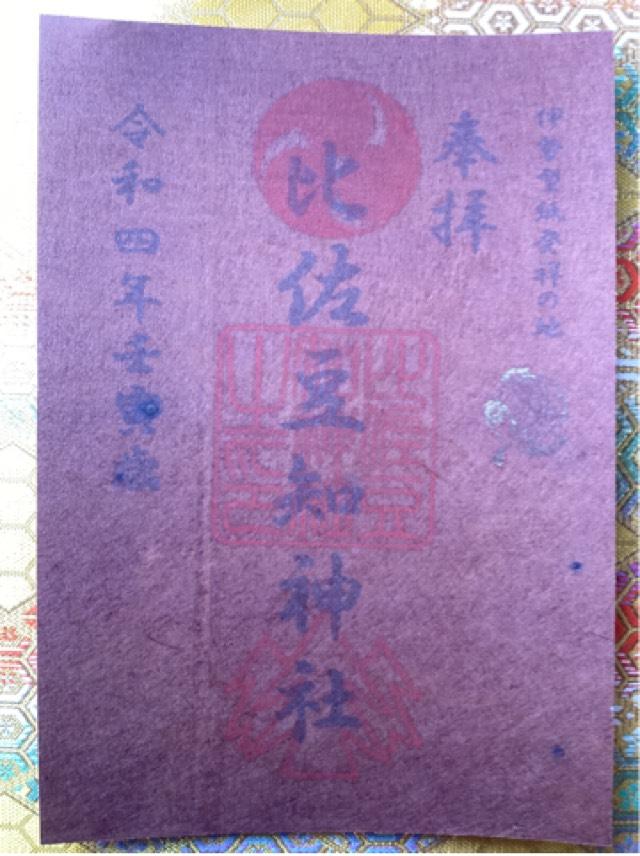 伊勢型紙発祥の地
奉拝
比佐豆知神社
令和四年壬寅歳